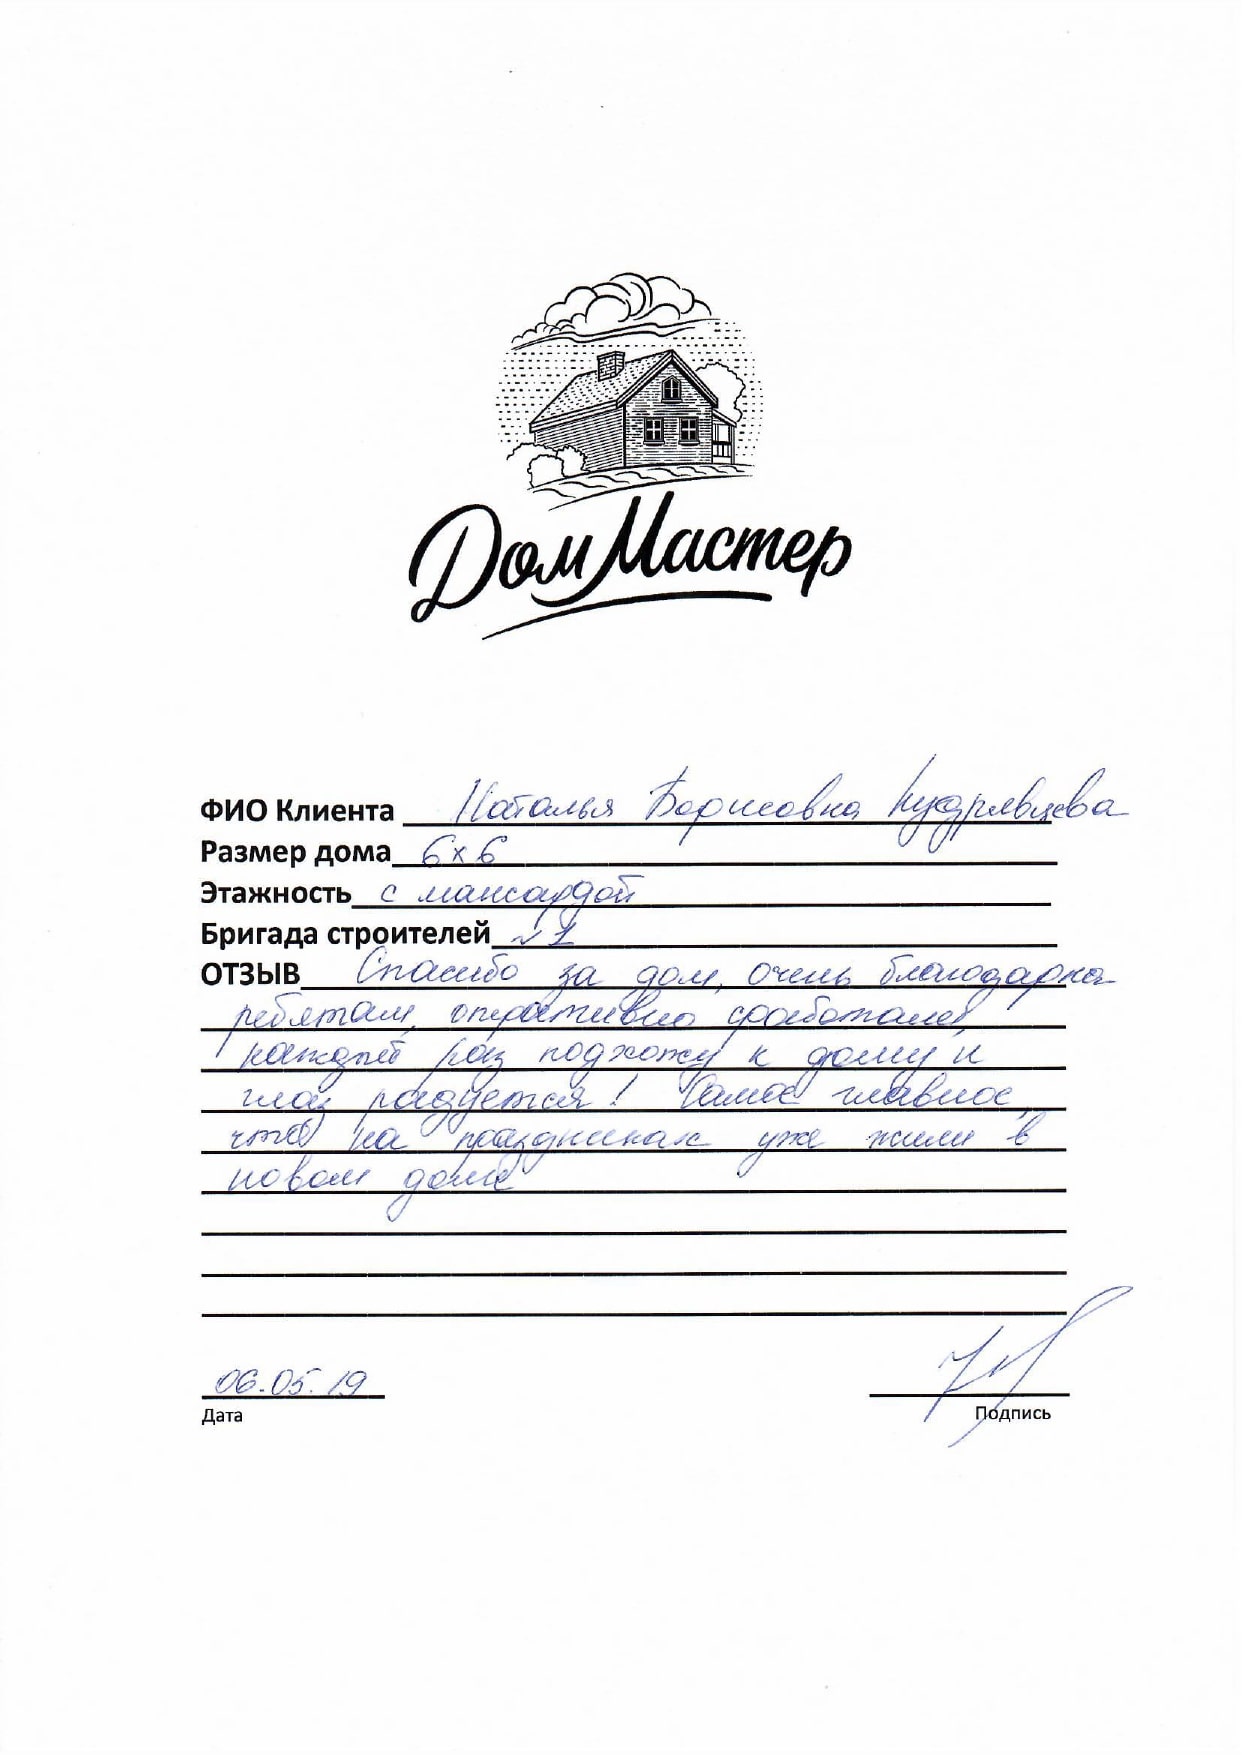 Дом Мастер
ФИО Клиента Наталья Борисовна Кудрявцева
Размер дома 6х6
Этажность с мансардой
Бригада строителей №1
ОТЗЫВ Спасибо за дом, очень благодарна
ребятам, оперативно сработали,
каждый раз подхожу к дому и
глаз радуется! Самое главное,
что на праздниках уже жили в
новом доме
06.05.19
Дата Подпись